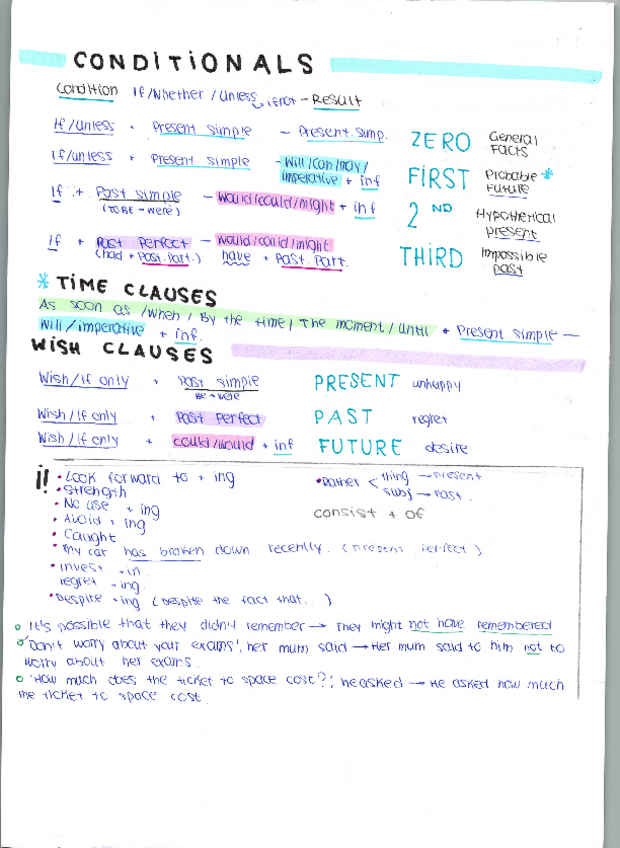 CONDITIONALS
Condition If/Whether/Unless, if not - Result
If/unless + Present simple - Present simp. ZERO General Facts
If/unless + Present simple - will/can/may/imperative + inf FIRST Probable * Future
If + Past simple - would/could/might + inf 2ND Hypothetical present
(TO BE - were)
If + Past perfect - would/could/might THIRD Impossible past
(had + Past. Part.) have + Past. Part.
* TIME CLAUSES
As soon as / When / By the time / The moment / Until + Present simple -
Will/imperative + inf.
WISH CLAUSES
Wish/if only + Past simple PRESENT unhappy
BE - were
Wish/if only + Past perfect PAST regret
Wish/if only + could/would + inf FUTURE desire
¡! • Look forward to + ing
• Strength
• No use + ing
• Avoid + ing
• Caught
• Rather < thing → present
subj → Past.
consist + of
• My car has broken down recently. (Present Perfect)
• Invest - in
regret - ing
• Despite + ing (Despite the fact that...)
o It's possible that they didn't remember → They might not have remembered
o 'Don't worry about your exams', her mum said → Her mum said to him not to
worry about her exams.
o 'How much does the ticket to space cost?', he asked → He asked how much
the ticket to space cost.